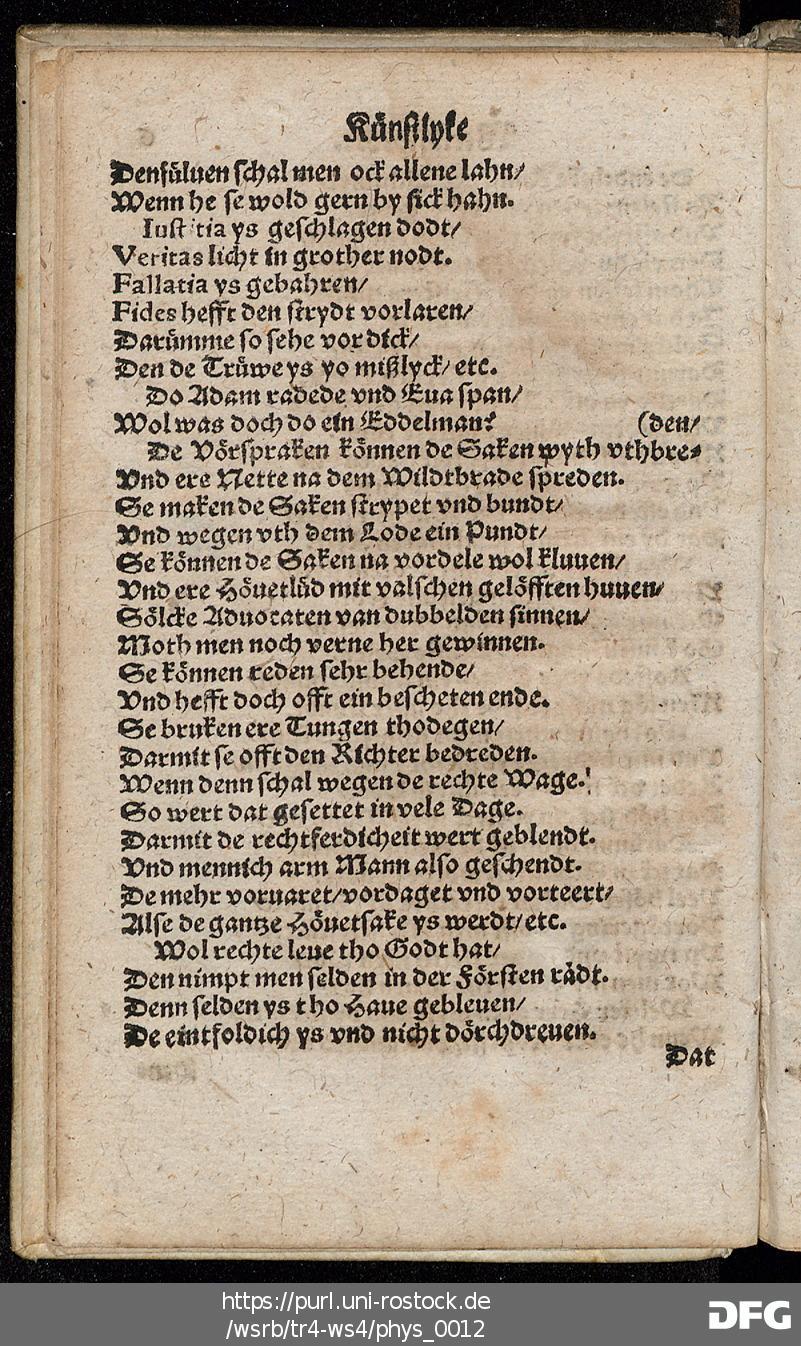 Künstlyke
Densüluen schal men ock allene lahn/
Wenn he se wold gern by sick hahn.
Iustitia ys geschlagen dodt/
Veritas licht in grother nodt.
Fallatia ys gebahren/
Fides hefft den strydt vorlaren/
Darümme so sehe vor dick/
Den de Trüwe ys yo mißlyck/ etc.
Do Adam radede vnd Eua span/
Wol was doch do ein Eddelman? (den/
De Vörspraken können de Saken wyth vthbre-
Vnd ere Nette na dem Wildtbrade spreden.
Se maken de Saken strypet vnd bundt/
Vnd wegen vth dem Lode ein Pundt/
Se können de Saken na vordele wol kluuen/
Vnd ere Höuetlüd mit valschen gelöfften huuen/
Sölcke Aduocaten van dubbelden sinnen/
Moth men noch verne her gewinnen.
Se können reden sehr behende/
Vnd hefft doch offt ein bescheten ende.
Se bruken ere Tungen thodegen/
Darmit se offt den Richter bedreden.
Wenn denn schal wegen de rechte Wage.
So wert dat gesettet in vele Dage.
Darmit de rechtferdicheit wert geblendt.
Vnd mennich arm Mann also geschendt.
De mehr voruaret/vordaget vnd vorteert/
Alse de gantze Höuetsake ys werdt/ etc.
Wol rechte leue tho Godt hat/
Den nimpt men selden in der Försten rädt.
Denn selden ys tho Haue gebleuen/
De eintfoldich ys vnd nicht dörchdreuen.
Dat
https://purl.uni-rostock.de
/wsrb/tr4-ws4/phys_0012
DFG